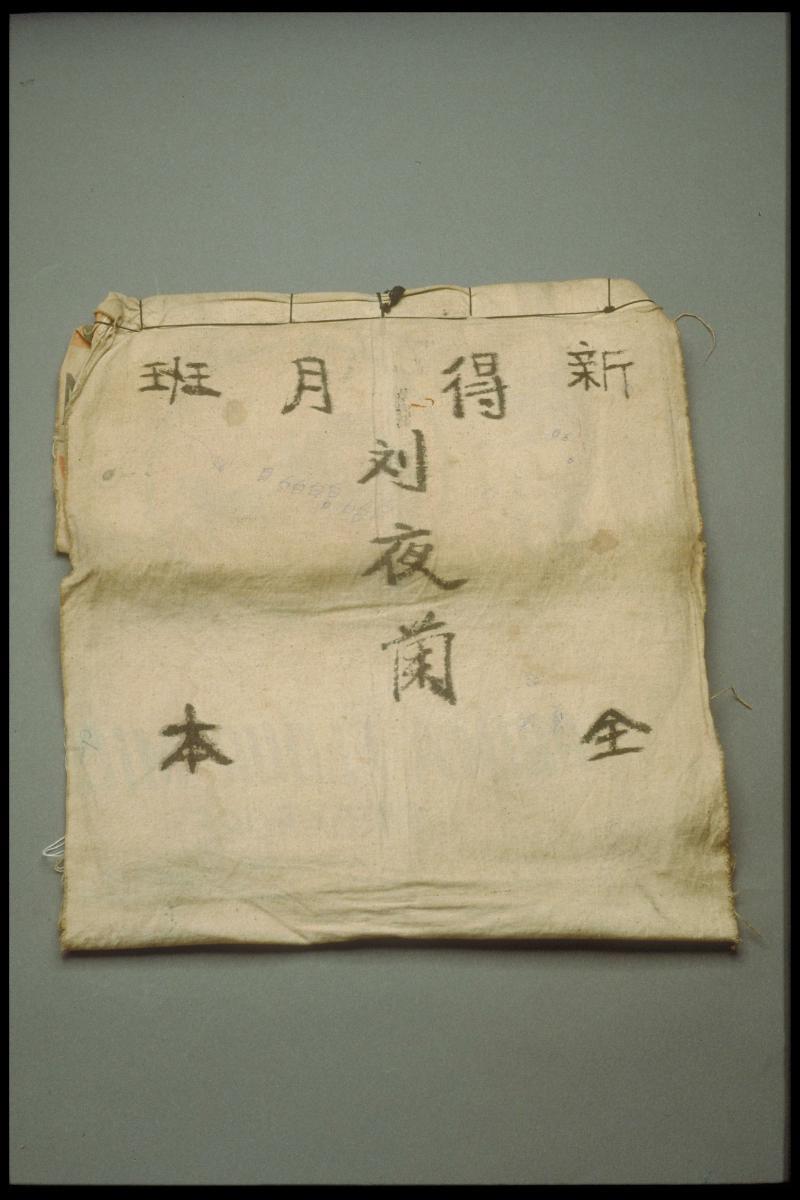 新得月班
刘夜菌
全本